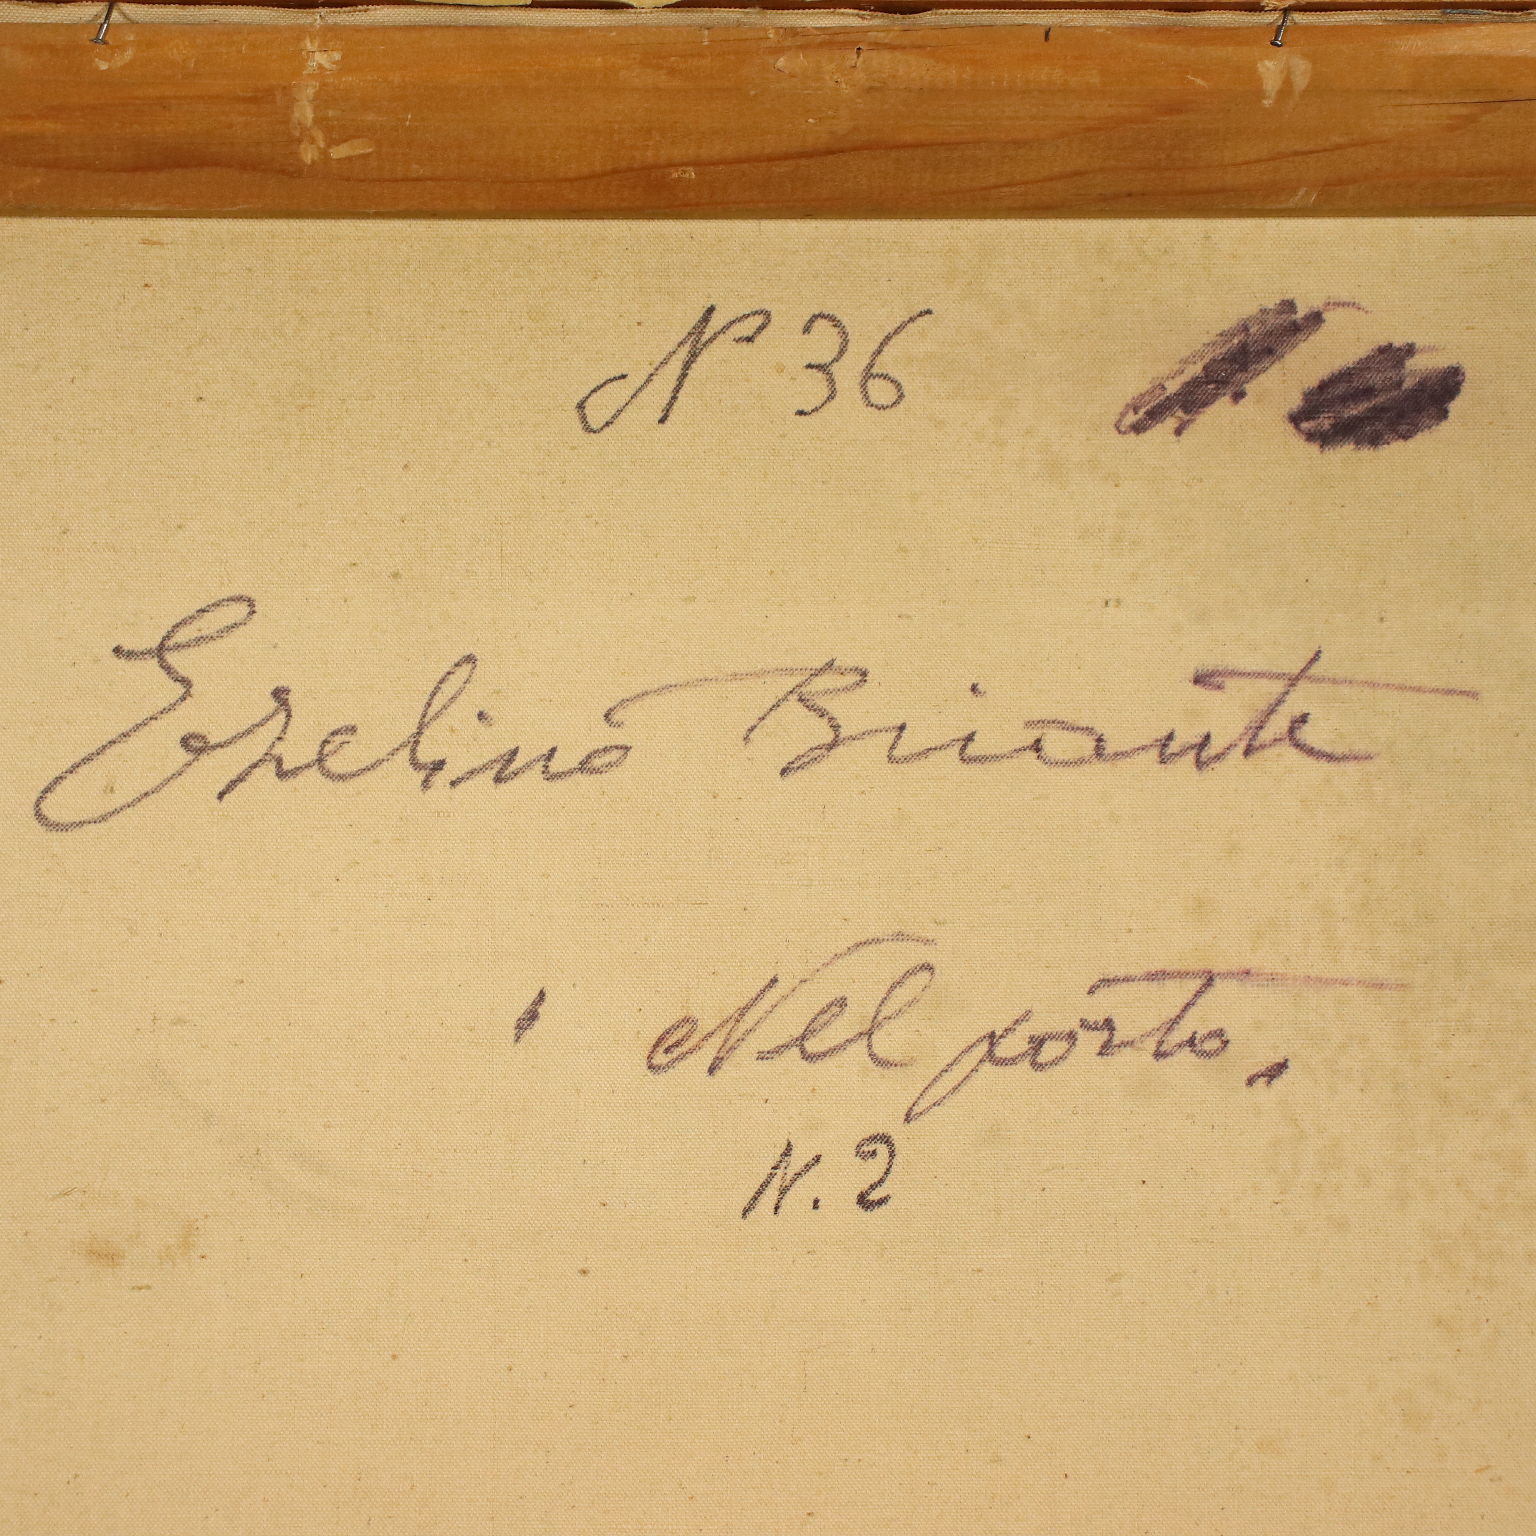 N° 36
Ezelino Briante
" Nel porto "
N. 2